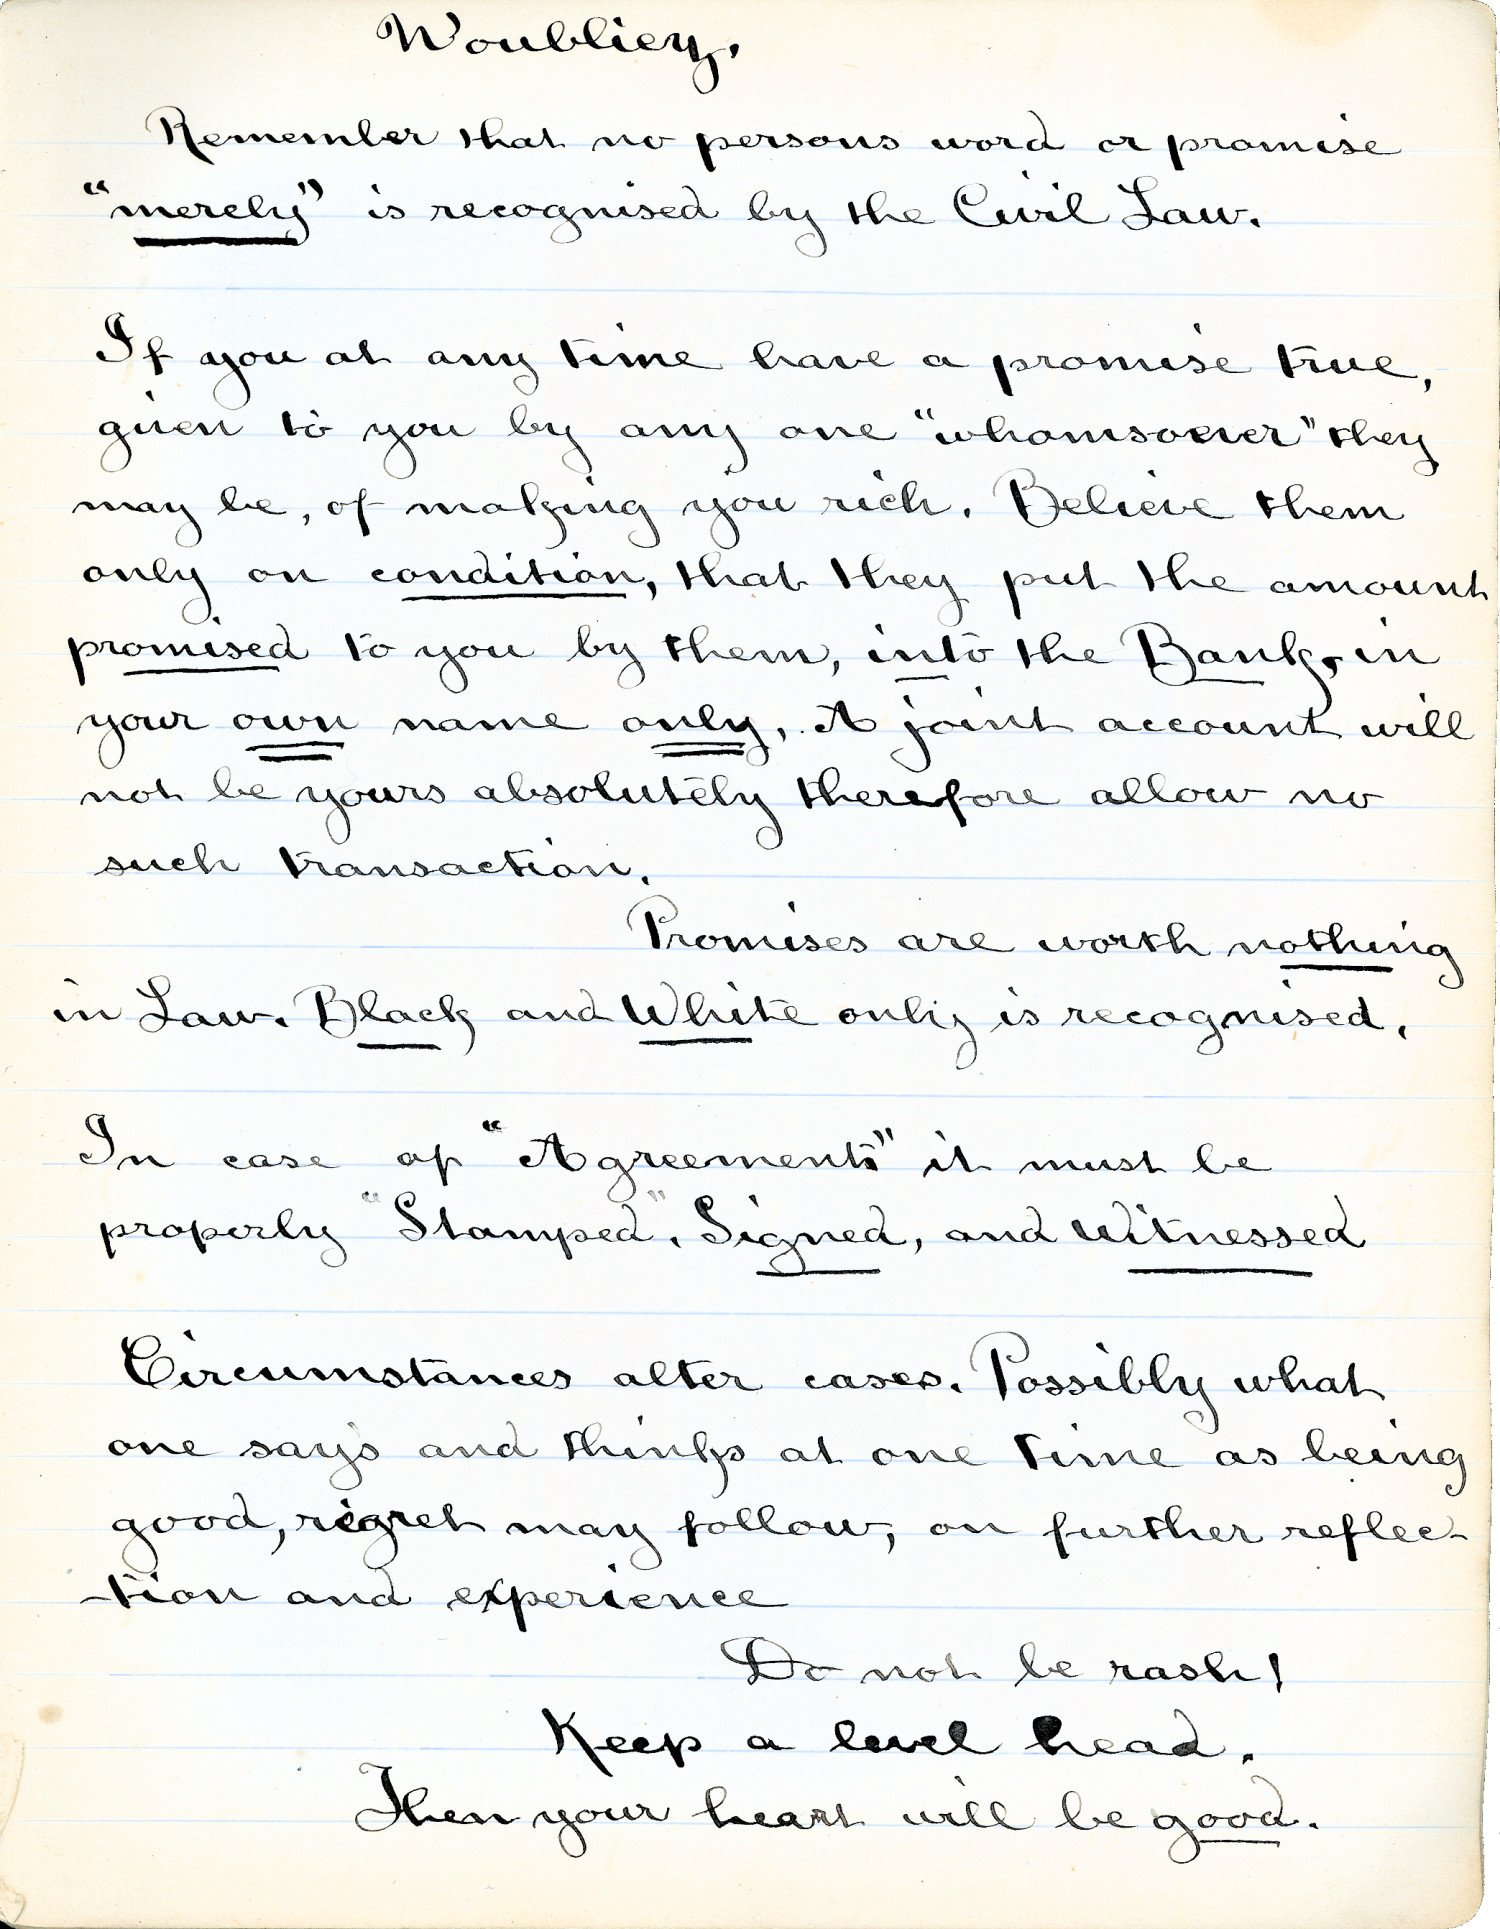 N'oubliez.
Remember that no persons word or promise
"merely" is recognised by the Civil Law.
If you at any time have a promise true,
given to you by any one "whomsoever" they
may be, of making you rich. Believe them
only on condition, that they put the amount
promised to you by them, into the Bank, in
your own name only, A joint account will
not be yours absolutely therefore allow no
such transaction.
Promises are worth nothing
in Law. Black and White only is recognised.
In case of "Agreements" it must be
properly "Stamped", Signed, and Witnessed
Circumstances alter cases. Possibly what
one says and thinks at one time as being
good, regret may follow, on further reflec-
-tion and experience
Do not be rash!
Keep a level head.
Then your heart will be good.